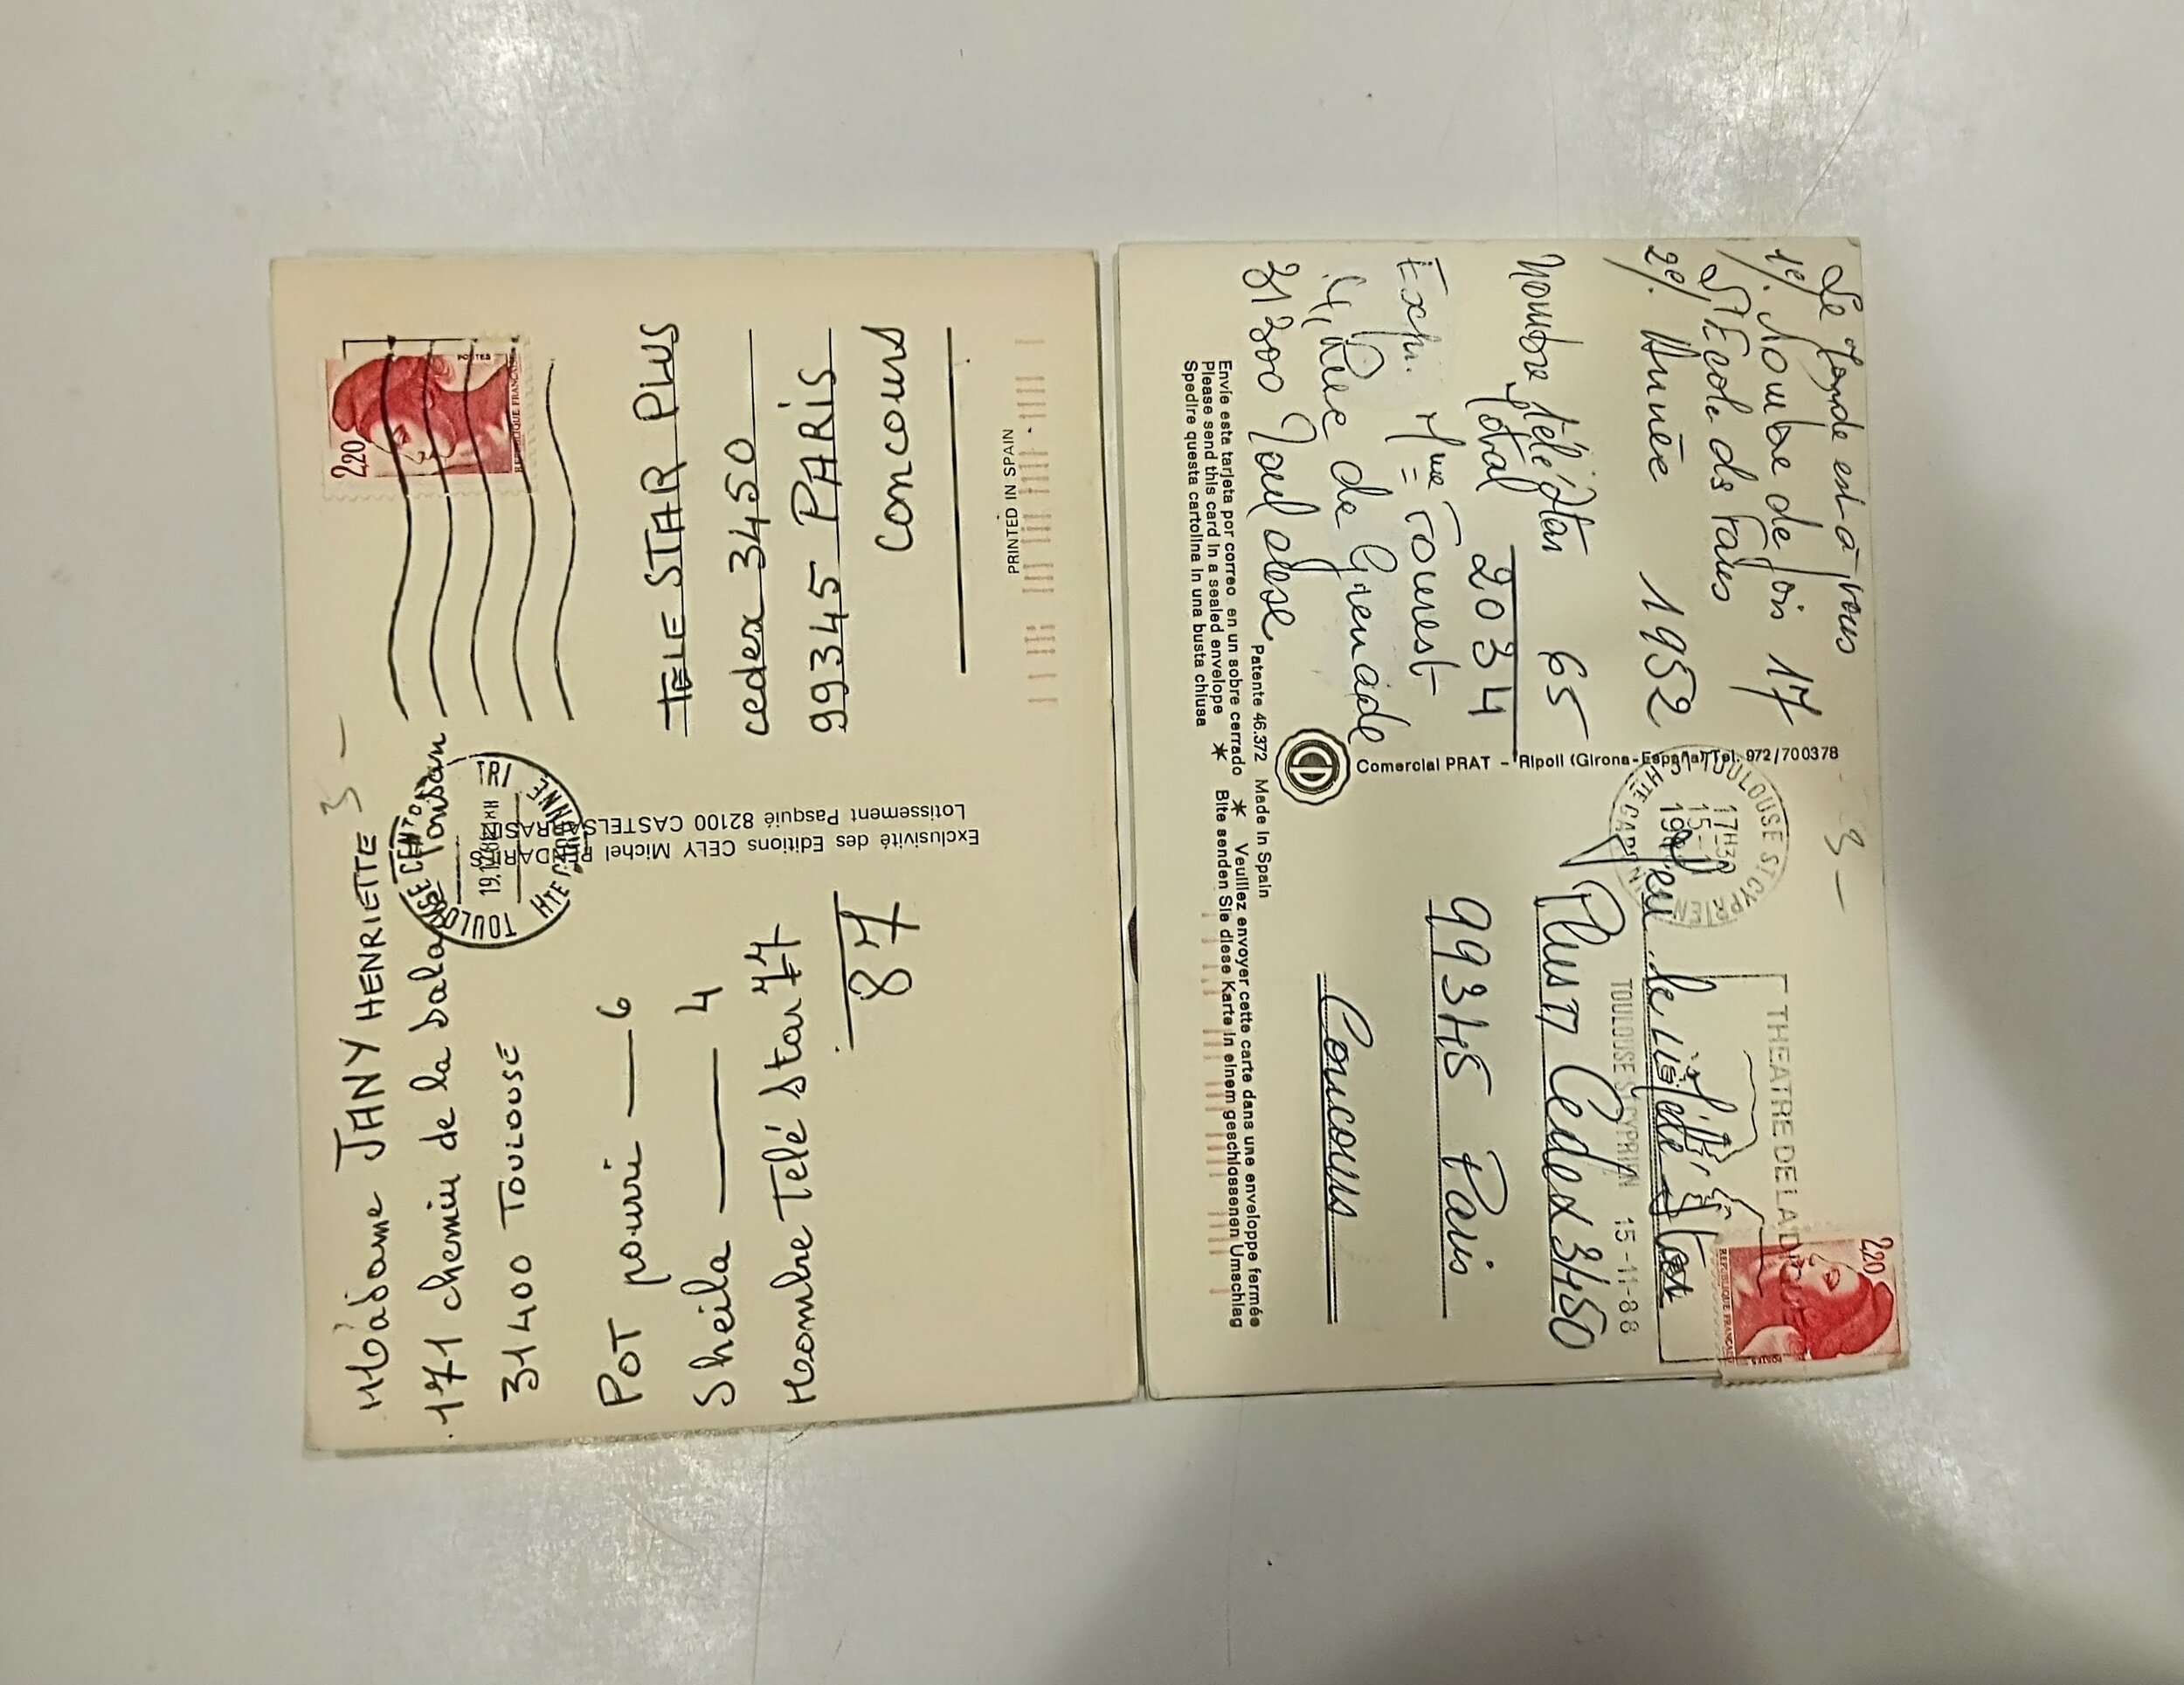 Madame JANY HENRIETTE
171 chemin de la
31400 TOULOUSE
POT pourri — 6
Sheila — 4
Nombre Télé Star 77
87
3 —
Exclusivité des Editions CELY Michel
Lotissement Pasquié 82100 CASTELSARRASIN
TOULOUSE
HTE GARONNE
2,20
POSTES
REPUBLIQUE FRANCAISE
TELE STAR PLUS
cedex 3450
99345 PARIS
Concours
PRINTED IN SPAIN
Le Monde est à vous
1°/. Nombre de fois 17
l'Ecole ds fans
2°/. Année 1952
Nombre Télé Star 65
total 2034
Exp. Mme Fourest
4, Rue de Grenade
31300 Toulouse
Envíe esta tarjeta por correo en un sobre cerrado ✶ Veuillez envoyer cette carte dans une enveloppe fermée
Please send this card in a sealed envelope ✶ Bite senden Sie diese Karte in einem geschlossenen Umschlag
Spedire questa cartolina in una busta chiusa
Patente 46.372 Made in Spain
Comercial PRAT - Ripoll (Girona-España) Tel. 972/700378
3 —
31 TOULOUSE ST CYPRIEN
17H30
15-11
HTE GARONNE
THEATRE DE LA
TOULOUSE ST CYPRIEN 15-11-88
2,20
POSTES
REPUBLIQUE FRANCAISE
Jeu de Télé Star
Plus Cedex 3450
99345 Paris
Concours